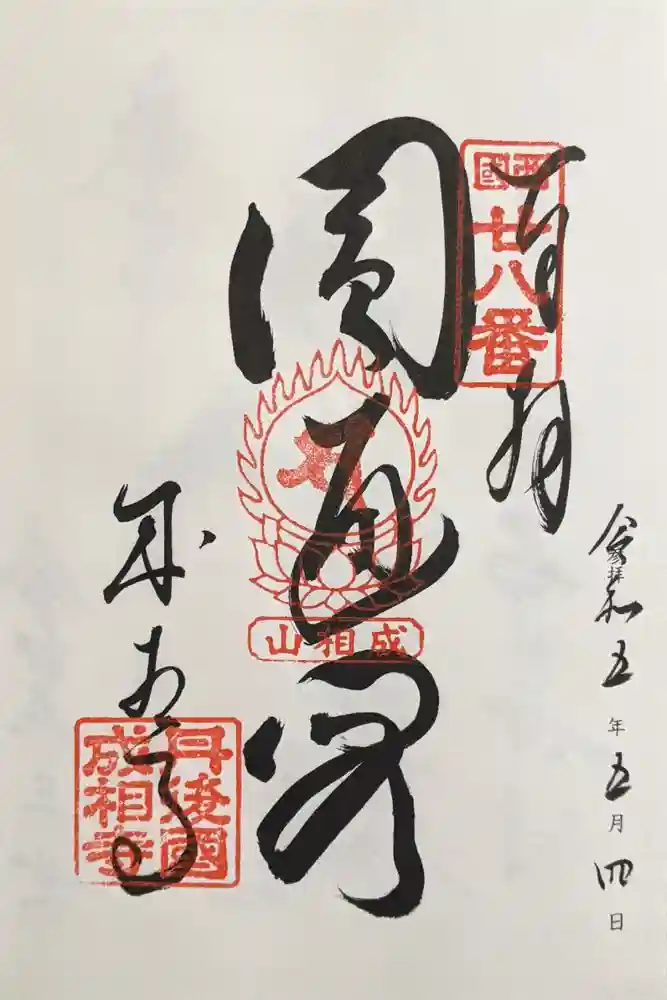 令和五年五月四日
参拝
奉拝
西國
廿八番
圓通閣
成相山
成相寺
丹後國
成相寺